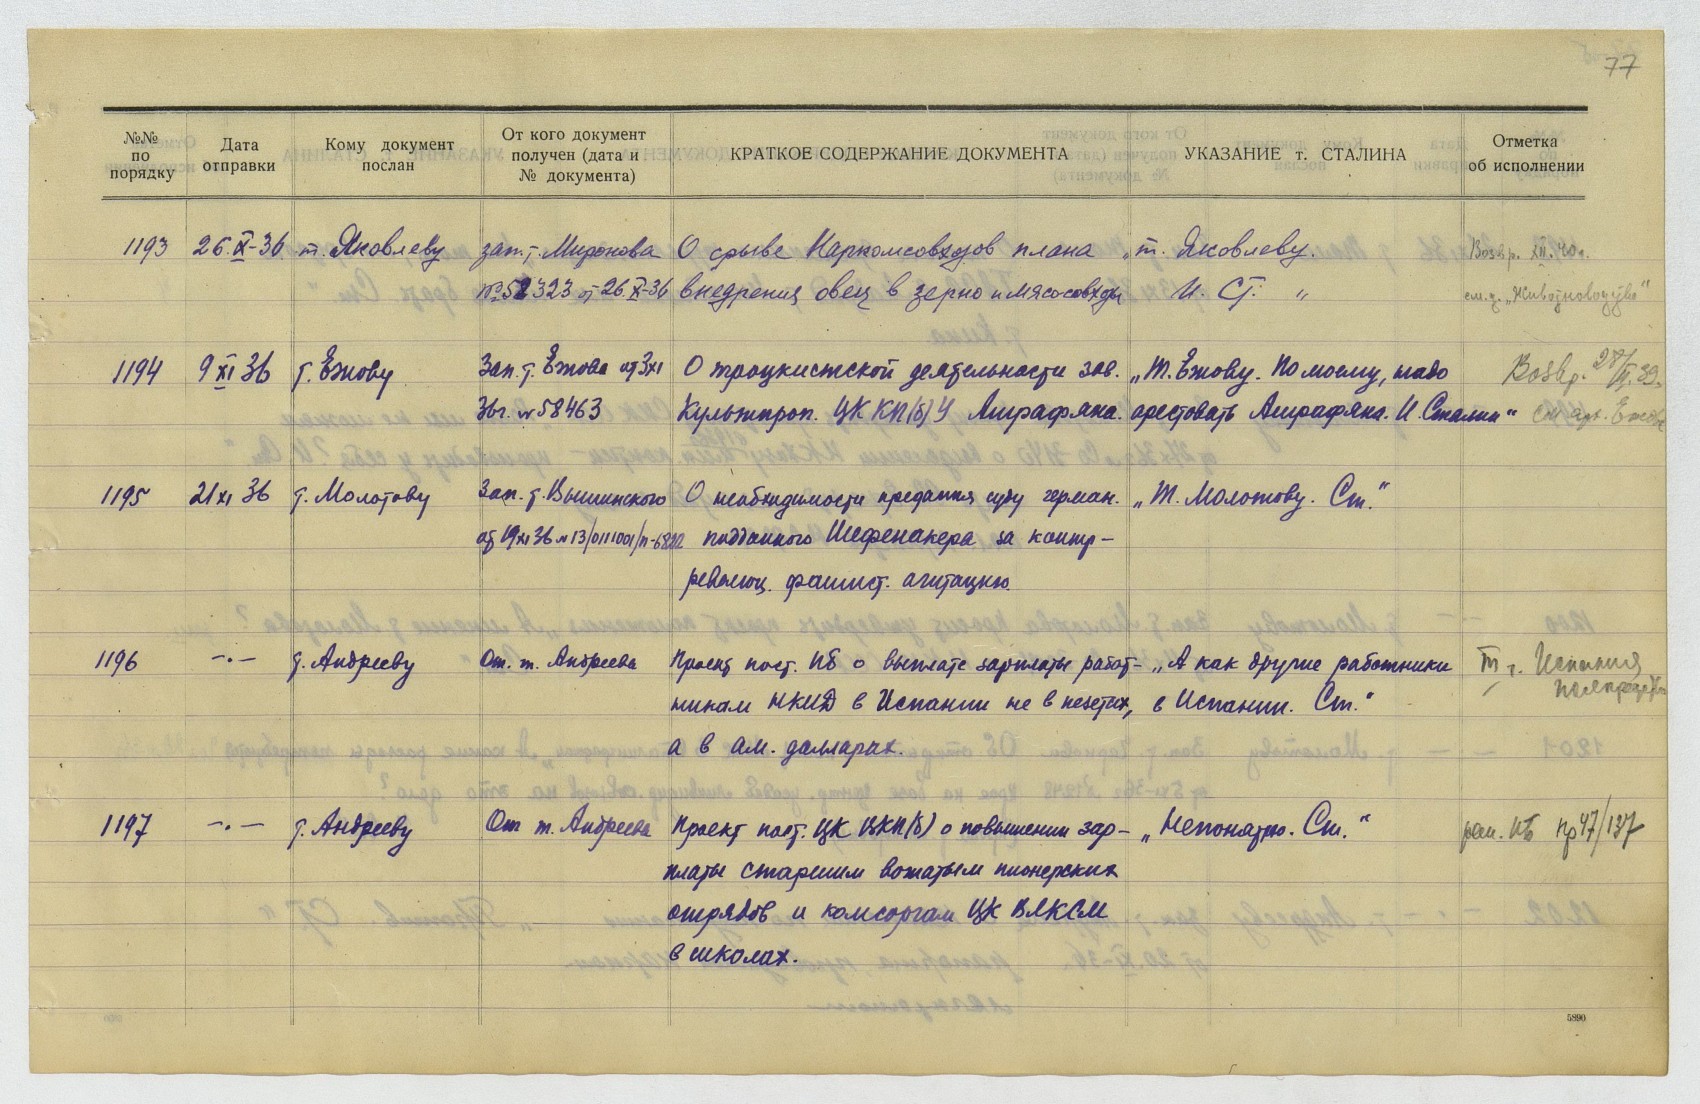 77
№№ по порядку
Дата отправки
Кому документ послан
От кого документ получен (дата и № документа)
КРАТКОЕ СОДЕРЖАНИЕ ДОКУМЕНТА
УКАЗАНИЕ т. СТАЛИНА
Отметка об исполнении
1193 26.X-36 т. Яковлеву зап. т. Миронова О срыве Наркомсовхозов плана „т. Яковлеву. Возвр. XII.40г.
№ 52323 от 26.X-36 внедрения овец в зерно и мясосовхозы И. Ст. “ см. п. „Животноводство“
1194 9 XI 36 т. Ежову Зап. т. Ежова от 3 XI О троцкистской деятельности зав. „Т. Ежову. По моему, надо Возвр.
36г. № 58463 Культпроп. ЦК КП(б)У Ашрафяна. арестовать Ашрафяна. И. Сталин“ см. арх. Ежова
1195 21 XI 36 т. Молотову Зап. т. Вышинского О необходимости предания суду герман. „Т. Молотову. Ст.“
от 19 XI 36 № 13/0111001/п-6822 подданного Шефенакера за контр-
революц. фашист. агитацию.
1196 –·– т. Андрееву От т. Андреева Проект пост. ПБ о выплате зарплаты работ- „А как другие работники т. Испания
никам НКИД в Испании не в пезетах, в Испании. Ст.“ полпредство
а в ам. долларах.
1197 –·– т. Андрееву От т. Андреева Проект пост. ЦК ВКП(б) о повышении зар- „Непонятно. Ст.“ реш. ПБ пр 47/137
платы старшим вожатым пионерских
отрядов и комсоргам ЦК ВЛКСМ
в школах.
5890